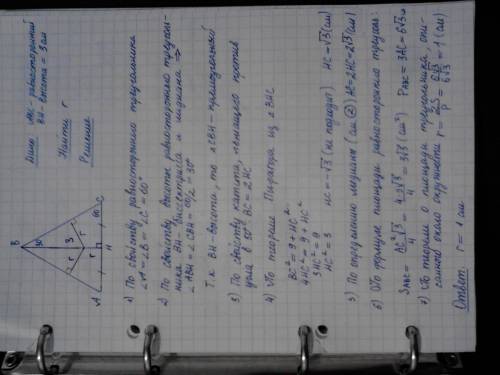 Дано: ABC - равносторонний
BH - высота = 3 см
Найти: r
Решение
B
30°
3
r
r
r
60°
A
H
C
1) По свойству равностороннего треугольника
∠A = ∠B = ∠C = 60°
2) По свойству высоты равностороннего треуголь-
ника BH - биссектриса и медиана ⇒
∠ABH = ∠CBH = 60/2 = 30°
Т.к. BH - высота, то △CBH - прямоугольный
3) По свойству катета, лежащего против
угла в 30° BC = 2HC
4) По теореме Пифагора из △BHC
BC² = 9 + HC²
4HC² = 9 + HC²
3HC² = 9
HC² = 3
HC = -√3 (не подходит) HC = √3 (см)
5) По определению медианы (см ②) AC = 2HC = 2√3 (см)
6) По формуле площади равностороннего треугол:
S ABC = AC²√3/4 = 4·3√3/4 = 3√3 (см²) P ABC = 3AC = 6√3 см
7) По теореме о площади треугольника, опи-
санного около окружности r = 2S/P = 6√3/6√3 = 1 (см)
Ответ: r = 1 см